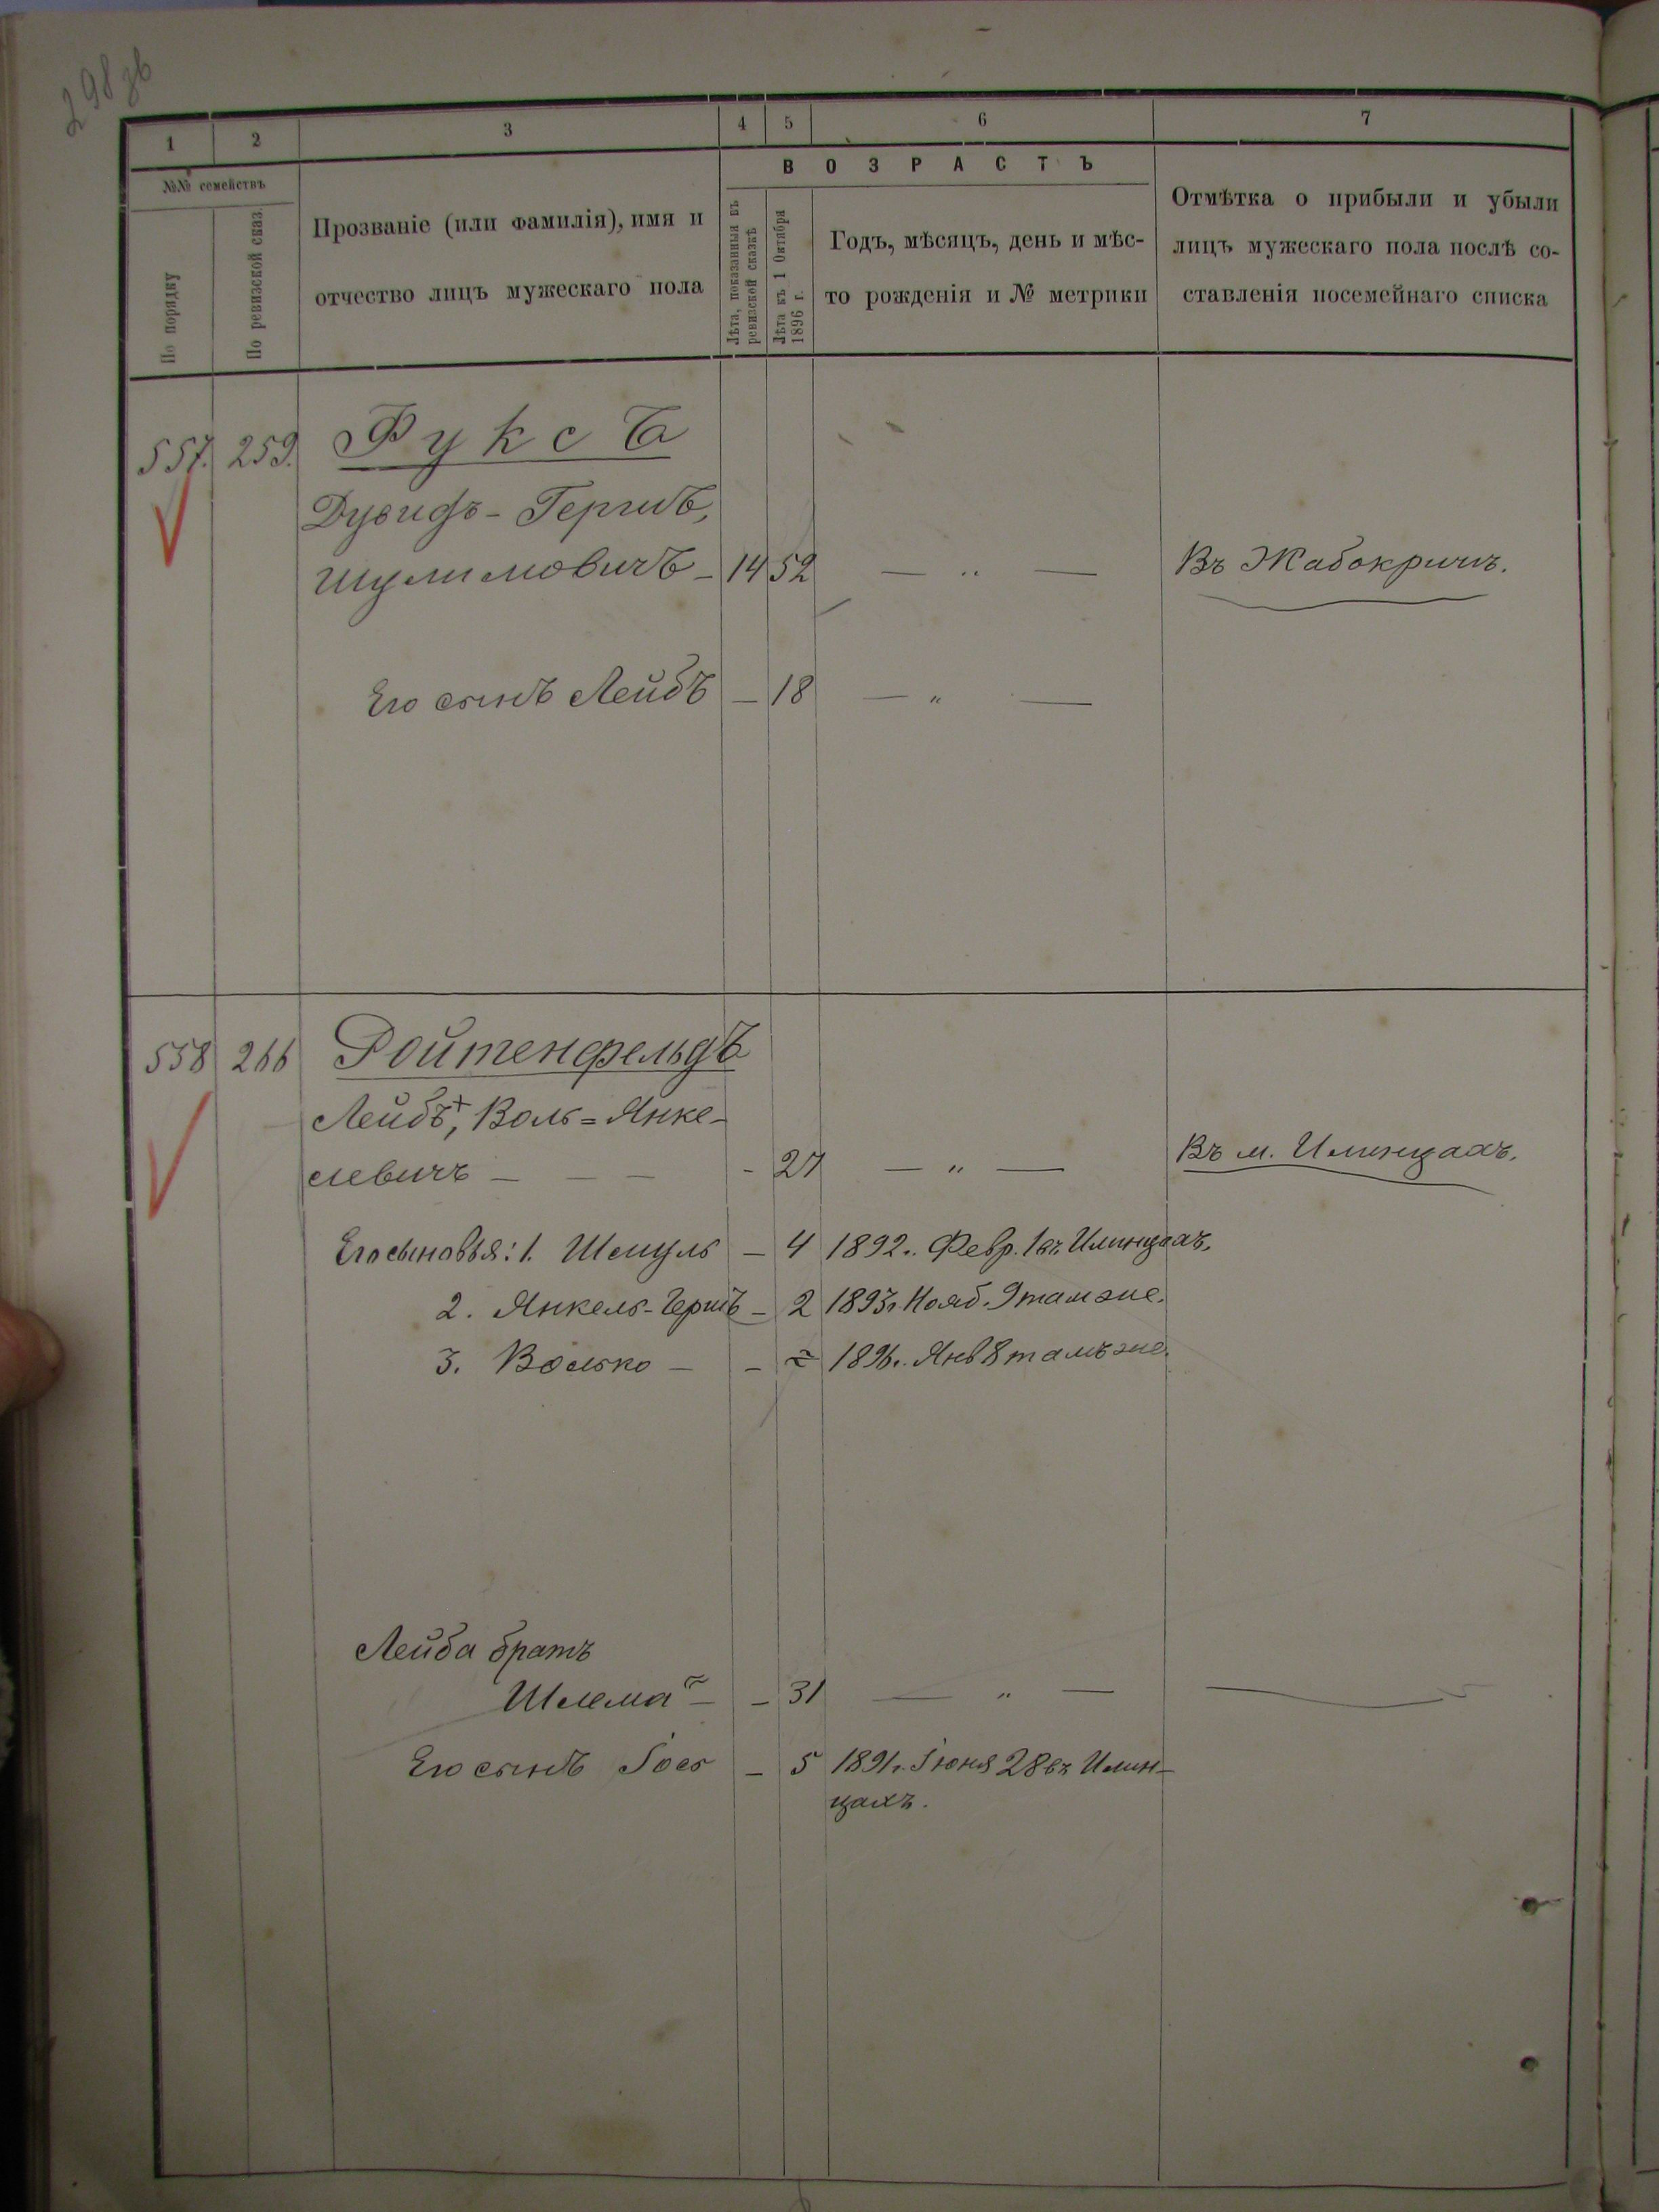 298зв
1 2 3 4 5 6 7
№№ семействъ
По порядку
По ревизской сказ.
Прозваніе (или фамилія), имя и
отчество лицъ мужескаго пола
ВОЗРАСТЪ
Лѣта, показанныя въ
ревизской сказкѣ
Лѣта къ 1 Октября
1896 г.
Годъ, мѣсяцъ, день и мѣс-
то рожденія и № метрики
Отмѣтка о прибыли и убыли
лицъ мужескаго пола послѣ со-
ставленія посемейнаго списка
557. 259. Фуксъ
Дувидъ-Гершъ,
Шулимовичъ - 14 52 — „ — Въ Жабокричѣ.
Его сынъ Лейбъ - 18 — „ —
558 266 Ройтенфельдъ
Лейбъ+, Воль=Янке-
левичъ - - - - 27 — „ — Въ м. Илинцахъ.
Его сыновья: 1. Шмуль - 4 1892г. Февр. 1 въ Илинцахъ.
2. Янкель-Гершъ - 2 1893г. Нояб. 9 тамже.
3. Волько - - = 1896г. Янв 8 тамъ же.
Лейба братъ
Шлема - - 31 — „ —
Его сынъ Іось - 5 1891г. Іюня 28 въ Илин-
цахъ.